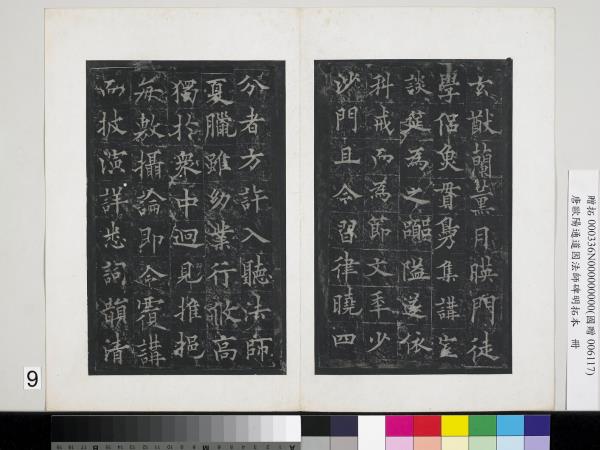 玄猷蘭薰月暎門徒
學侶魚貫鳧集講室
談筵為之嚻隘遂依
科戒而為節文年少
沙門且令習律曉四
分者方許入聽法師
夏臘雖幼業行攸高
獨於衆中迥見推挹
每敷攝論即令覆講
而披演詳悉詞韻清
贈拓 000336N000000000(國贈 006117)
唐歐陽通道因法師碑明拓本 冊
9